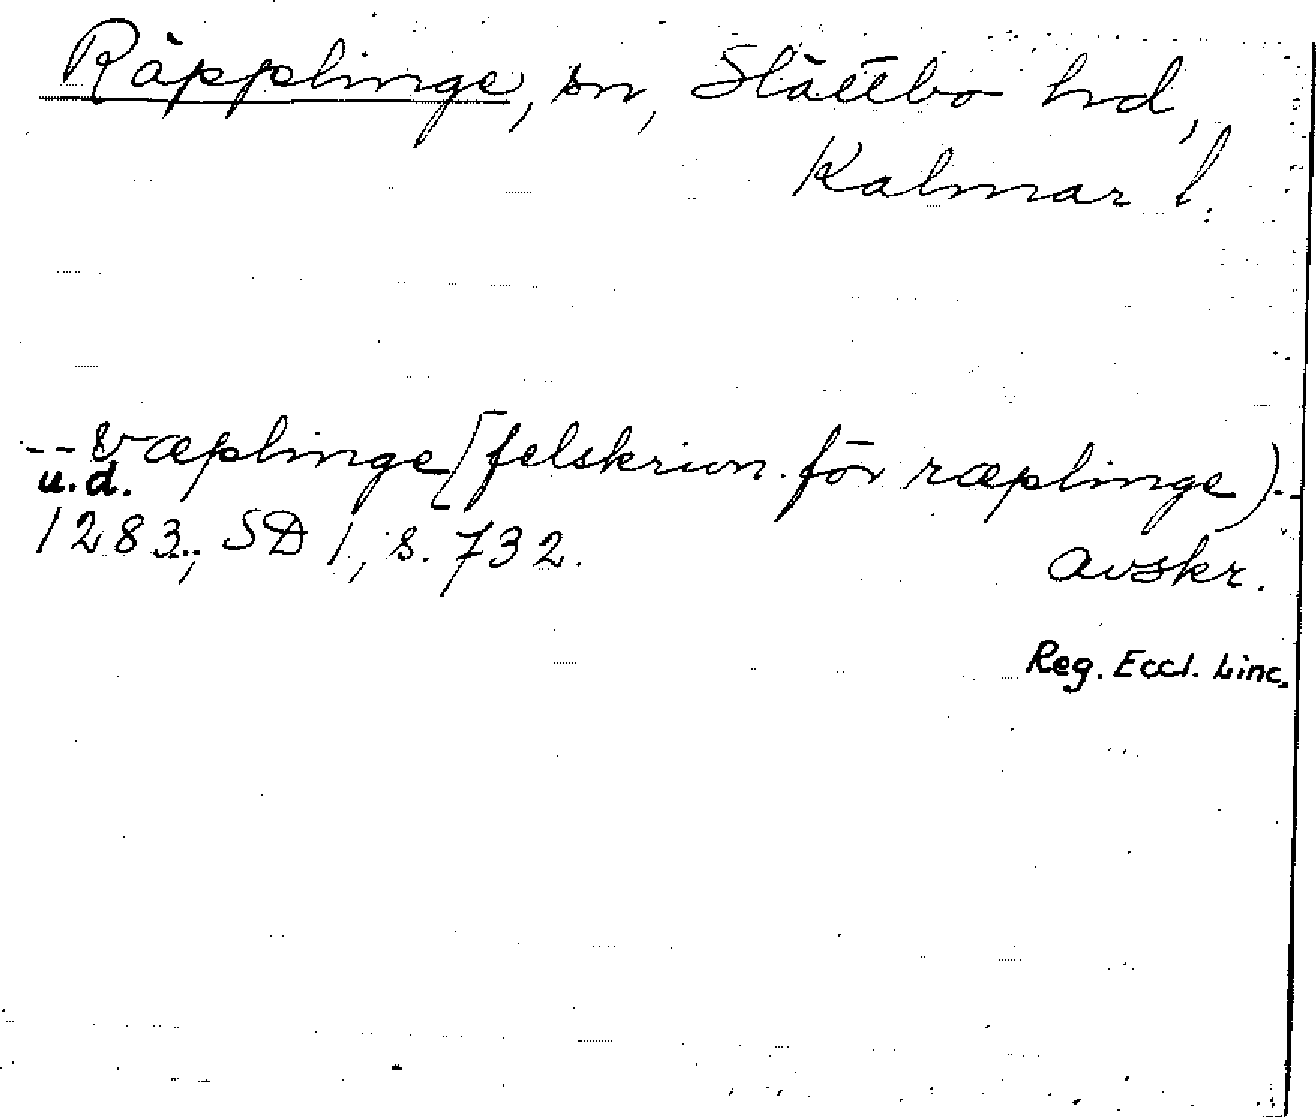 Räpplinge, sn, Slättbo hd,
Kalmar l.
-- væplinge [felskrivn. för ræplinge) --
u.d.
1283, SD 1, s. 732.
avskr.
Reg. Eccl. Linc.